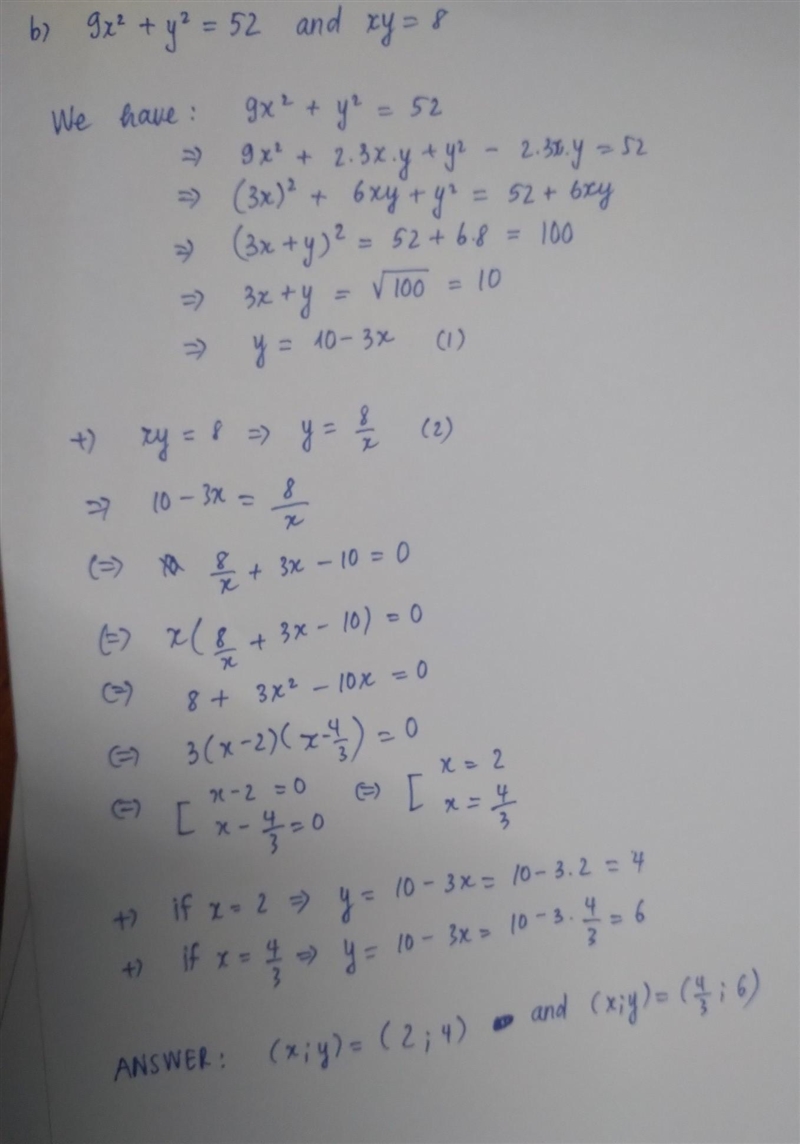 b) 9x² + y² = 52 and xy = 8
We have: 9x² + y² = 52
=> 9x² + 2.3x.y + y² - 2.3x.y = 52
=> (3x)² + 6xy + y² = 52 + 6xy
=> (3x + y)² = 52 + 6.8 = 100
=> 3x + y = √100 = 10
=> y = 10 - 3x (1)
+) xy = 8 => y = 8/x (2)
=> 10 - 3x = 8/x
(=) 8/x + 3x - 10 = 0
(=) x(8/x + 3x - 10) = 0
(=) 8 + 3x² - 10x = 0
(=) 3(x-2)(x-4/3) = 0
(=) [ x-2 = 0 (=) [ x = 2
x - 4/3 = 0 x = 4/3
+) if x = 2 => y = 10 - 3x = 10 - 3.2 = 4
+) if x = 4/3 => y = 10 - 3x = 10 - 3.4/3 = 6
ANSWER: (x;y) = (2;4) and (x;y) = (4/3;6)